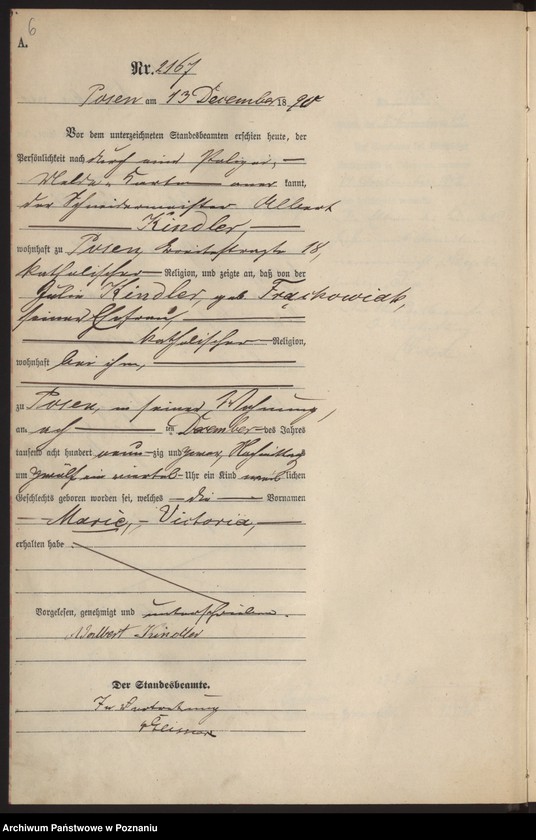 6
A.
Nr. 2167
Posen am 13 December 1890
Vor dem unterzeichneten Standesbeamten erschien heute, der
Persönlichkeit nach durch eine Polizei-
Melde-Karte aner kannt,
der Schneidermeister Albert
Kindler,
wohnhaft zu Posen, Breitestraße 18,
katholischer Religion, und zeigte an, daß von der
Julie Kindler, geb. Frąckowiak,
seiner Ehefrau,
katholischer Religion,
wohnhaft bei ihm,
zu Posen, in seiner Wohnung,
am ach ten December des Jahres
tausend acht hundert neun zig und zwar, Nachmittags
um zwölf ein viertel Uhr ein Kind weib lichen
Geschlechts geboren worden sei, welches die Vornamen
Marie, Victoria,
erhalten habe
Vorgelesen, genehmigt und unterschrieben.
Adalbert Kindler
Der Standesbeamte.
In Vertretung
Archiwum Państwowe w Poznaniu